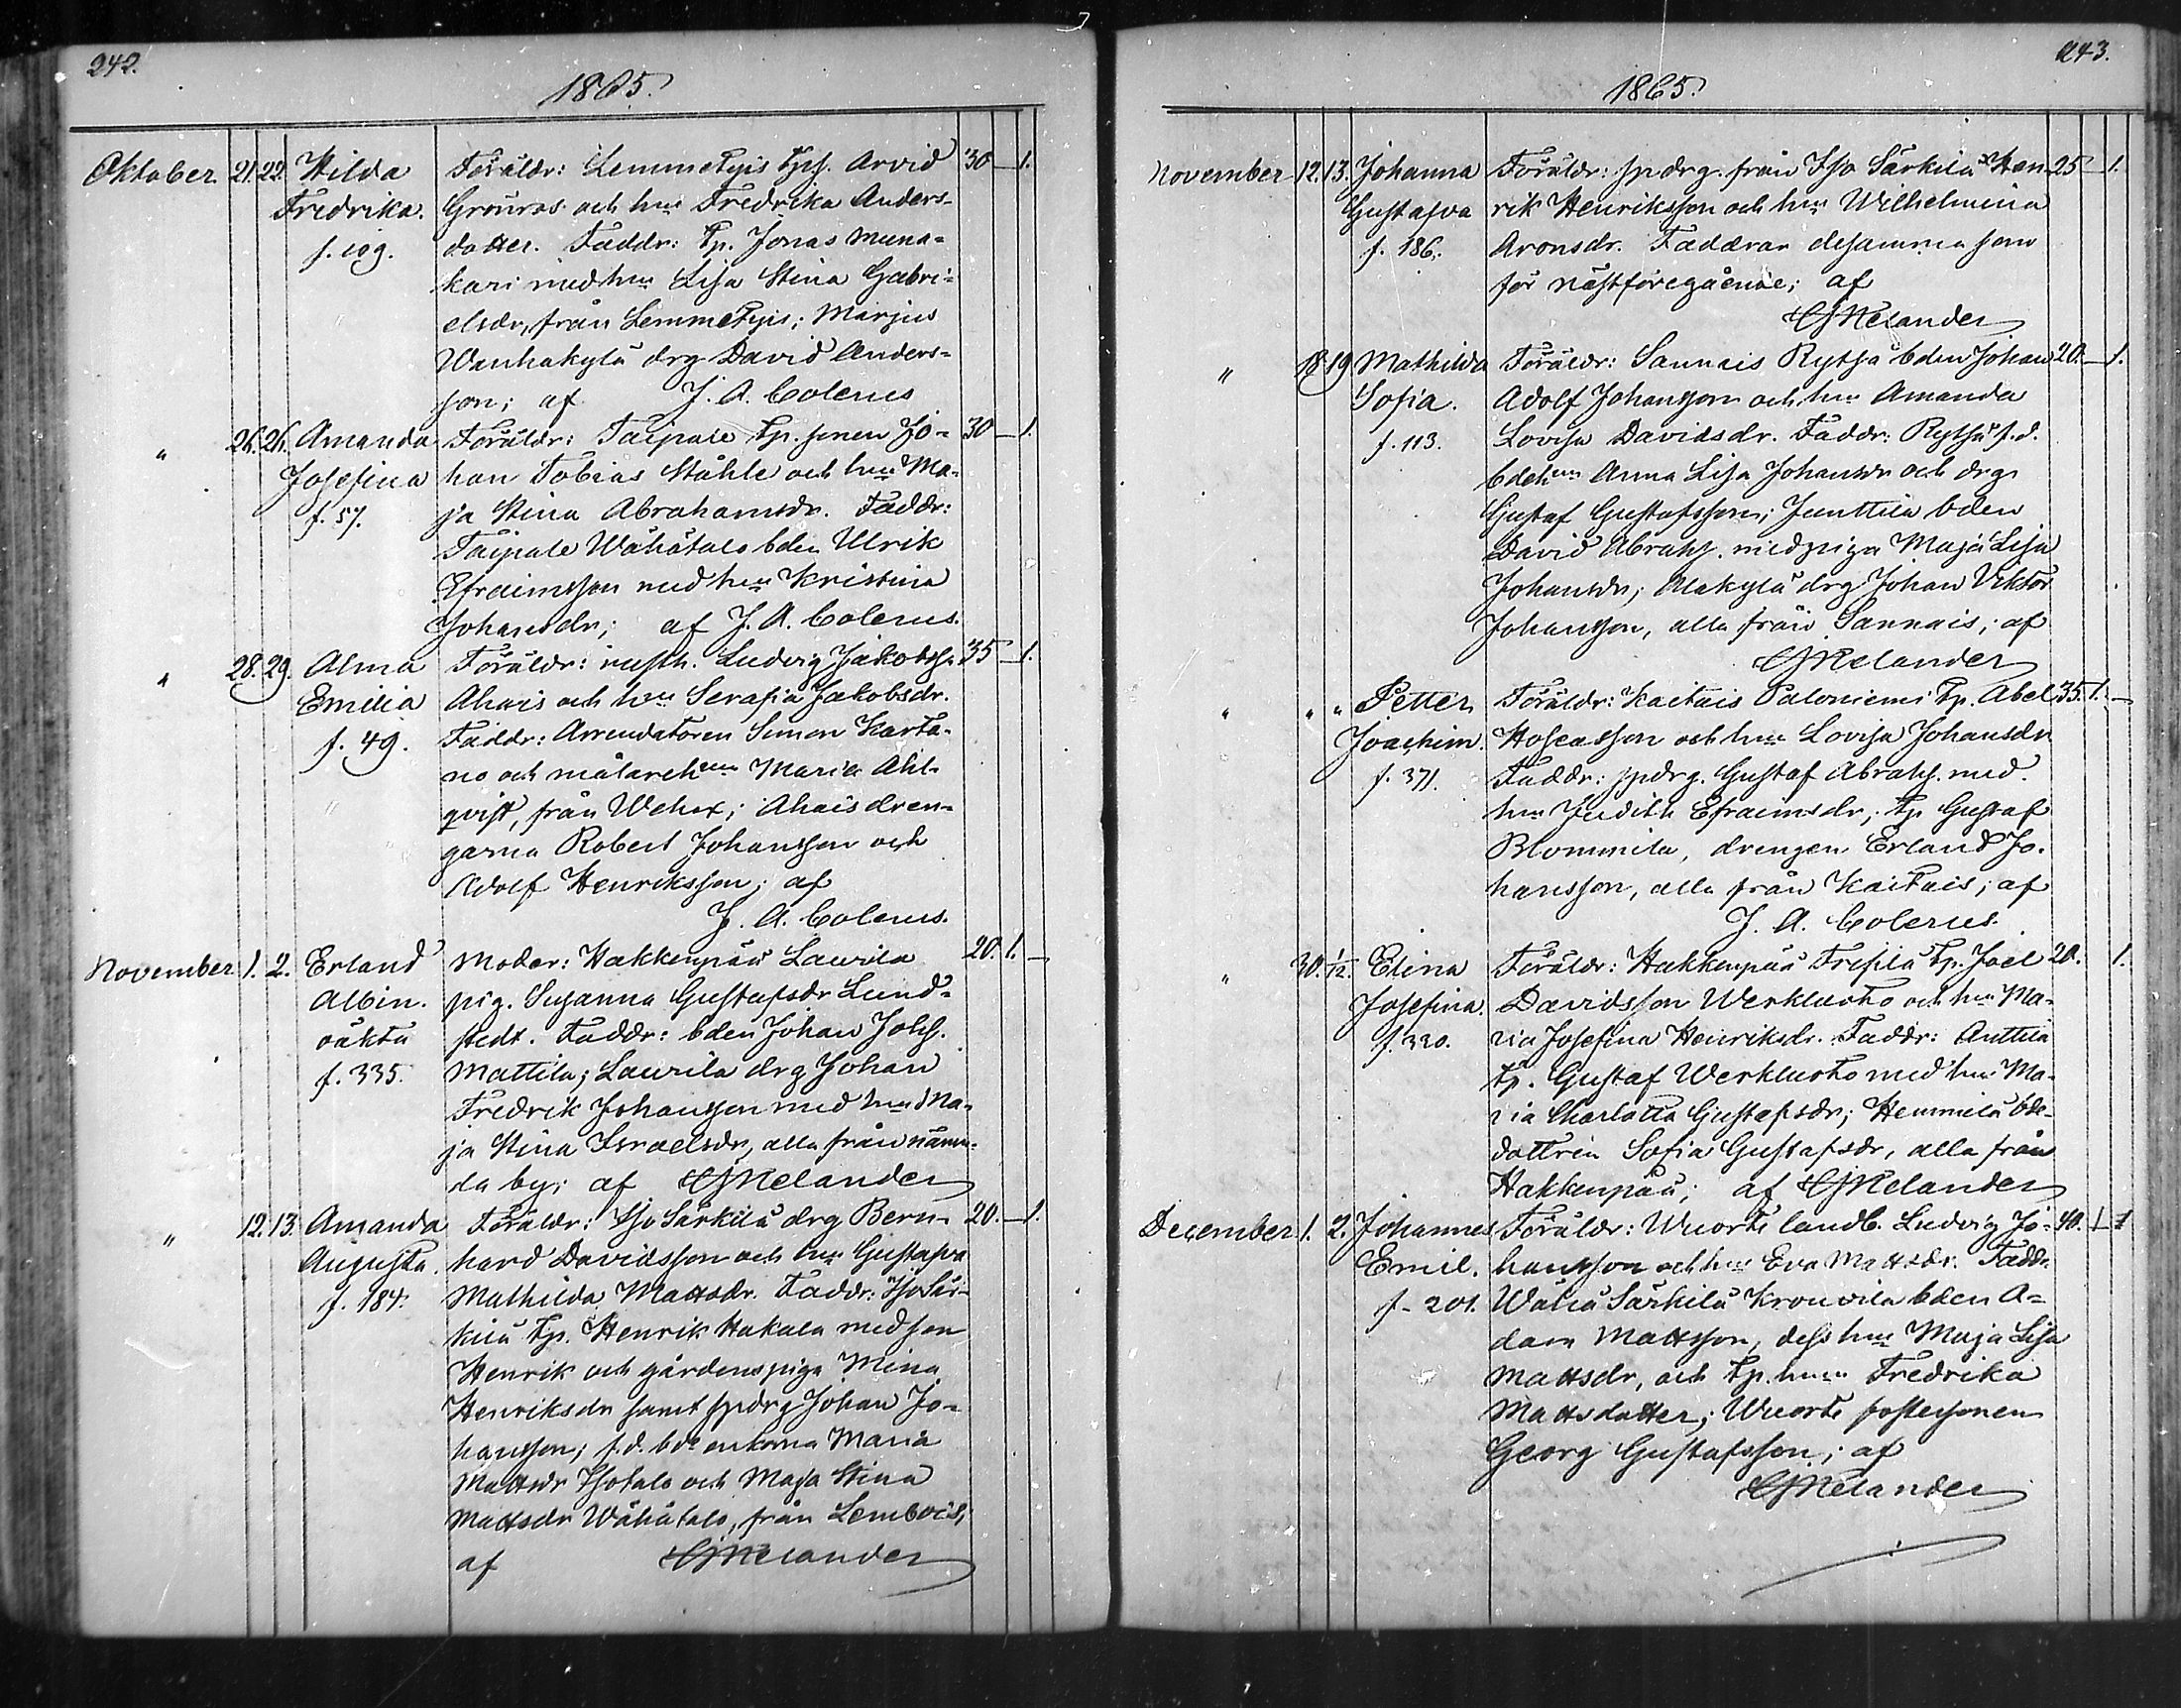 242.
1865.
Oktober 21. 22. Hilda Föräldr: Lemmetyis Tp. Arvid 30 — 1.
Fredrika. Grönros och hu Fredrika Anders-
f. 109. dotter. Faddr: Tp. Jonas Muna-
kari med hu Lisa Stina Gabri-
elsdr, från Lemmetyis; Marjus
Wanhakylä drg David Anders-
son; af J. A. Colerus
" 26. 26. Amanda Föräldr: Taipale Tp. sonen Jo- 30 — 1.
Josefina han Tobias Ståhle och hu Ma-
f. 57. ja Stina Abrahamsdr. Faddr:
Taipale Wähätalo bden Ulrik
Efraimsson med hu Kristina
Johansdr; af J. A. Colerus.
" 28. 29. Alma Föräldr: rusth. Ludvig Jakobss. 35 — 1.
Emilia Ahais och hu Serafia Jakobsdr.
f. 49. Faddr: Arrendatoren Simon Karta-
no och målareh Maria Ahl-
qvist, från Wehex; Ahais dren-
garna Robert Johansson och
Adolf Henriksson; af
J. A. Colerus.
November 1. 2. Erland Moder: Hakkenpää Laurila 20. 1. —
Albin. pig. Susanna Gustafsdr Lund-
oäkta stedt. Faddr: bden Johan Johs.
f. 335. Mattila; Laurila drg Johan
Fredrik Johansson med hu Ma-
ja Stina Israelsdr, alla från nämn-
da by; af Melander
" 12. 13. Amanda Föräldr: Iso Särkilä drg Bern- 20. — 1.
Augusta. hard Davidsson och hu Gustafva
f. 184. Mathilda Mattsdr. Faddr: Iso Sär-
kilä Tp. Henrik Hakala med son
Henrik och gårdenspiga Mina
Henriksdr samt spdrg Johan Jo-
hansson; f.d. bde enkorna Maria
Mattsdr Isotalo och Maja Stina
Mattsdr Wähätalo, från Lembois;
af Melander
243.
1865.
November 12. 13. Johanna Föräldr: spdrg. från Iso Särkilä Hen- 25 — 1.
Gustafva rik Henriksson och hu Wilhelmina
f. 186. Aronsdr. Faddrar desamma som
för nästföregående; af
Melander
" 18 19 Mathilda Föräldr: Sannais Rytsä bden Johan 20. — 1.
Sofia. Adolf Johansson och hu Amanda
f. 113. Lovisa Davidsdr. Faddr: Rytsä f.d.
bdeh Anna Lisa Johansdr och drg
Gustaf Gustafsson; Junttila bden
David Abrahs. med piga Maja Lisa
Johansdr; Alakylä drg Johan Viktor
Johansson, alla från Sannais; af
Melander
" " " Petter Föräldr: Kaitais Paloniemi Tp. Abel 35. 1. —
Joachim. Hoseasson och hu Lovisa Johansdr
f. 371. Faddr: spdrg. Gustaf Abrahs. med
hu Judith Efraimsdr; tp Gustaf
Blommila, drengen Erland Jo-
hansson, alla från Kaitais; af
J. A. Colerus.
" 30. 1/12. Elina Föräldr: Hakkenpää Trefilä Tp. Joel 20. 1.
Josefina. Davidsson Werkluoto och hu Ma-
f. 320. ria Josefina Henriksdr. Faddr: Anttila
tp. Gustaf Werkluoto med hu Ma-
ria Charlotta Gustafsdr; Hemmilä bde-
dottren Sofia Gustafsdr, alla från
Hakkenpää; af Melander
December 1. 2. Johannes Föräldr: Wuorte landb. Ludvig Jo- 40. 1 1
Emil. hansson och hu Eva Mattsdr. Faddr.
f. 201. Wähä Särkilä Krouvila bden A-
dam Mattsson, dess hu Maja Lisa
Mattsdr, och Tp. hu Fredrika
Mattsdotter; Wuorte fostersonen
Georg Gustafsson; af
Melander